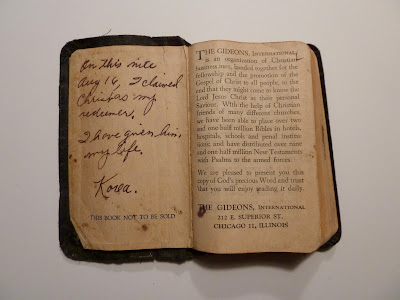 On this nite
Aug 16, I claimed
Christ as my
redeemer.
I have given him.
my life.
Korea.
THIS BOOK NOT TO BE SOLD
THE GIDEONS, INTERNATIONAL,
is an organization of Christian
business men, banded together for the
fellowship and the promotion of the
Gospel of Christ to all people, to the
end that they might come to know the
Lord Jesus Christ as their personal
Saviour. With the help of Christian
friends of many different churches,
we have been able to place over two
and one half million Bibles in hotels,
hospitals, schools and penal institu-
tions; and have distributed over nine
and one half million New Testaments
with Psalms to the armed forces.
We are pleased to present you this
copy of God's precious Word and trust
that you will enjoy reading it daily.
THE GIDEONS, INTERNATIONAL
212 E. SUPERIOR ST.
CHICAGO 11, ILLINOIS